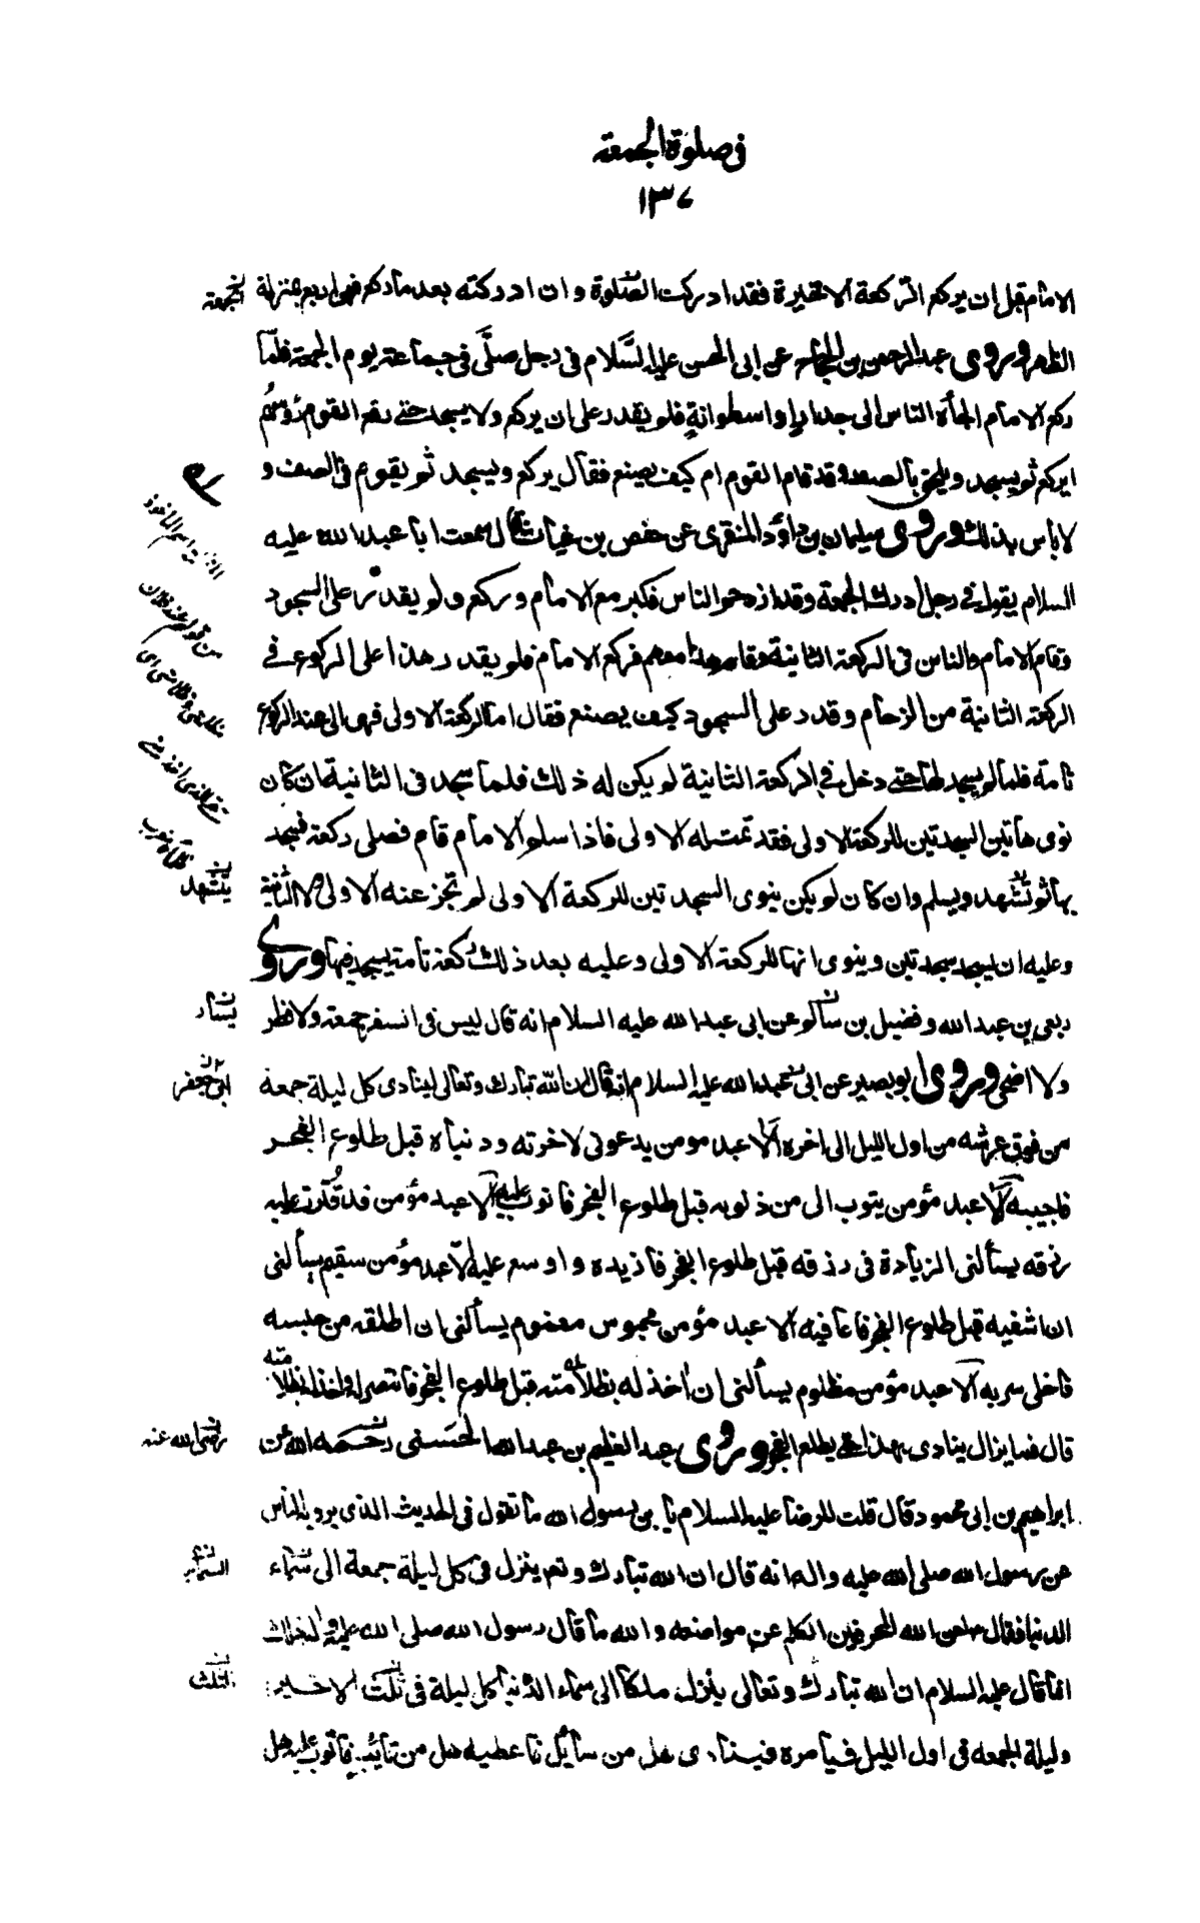 في صلوة الجمعة
١٣٧
الامام قبل ان يركع الركعة الاخيرة فقد ادركت الصلوة وان ادركته بعد ما ركع فهي اربع بمنزلة
الجمعة
الظهر وروى عبد الرحمن بن الحجاج عن ابي الحسن عليه السَّلام في رجل صلَّى في جماعة يوم الجمعة فلمّا
ركع الامام الجأه الناس الى جدار او اسطوانةٍ فلم يقدر على ان يركع ولا يسجد حتى رفع القوم رؤسهُم
ايركع ثم يسجد ويلحق بالصف وقد قام القوم ام كيف يصنع فقال يركع ويسجد ثم يقوم في الصف و
لا بأس بذلك وروى سليمان بن داؤد المنقري عن حفص بن غياث قال سمعت ابا عبد الله عليه
السلام يقول في رجل ادرك الجمعة وقد ازدحم الناس فكبر مع الامام وركع ولم يقدر على السجود
وقام الامام والناس في الركعة الثانية وقام هذا معهم فركع الامام فلم يقدر هذا على الركوع في
الركعة الثانية من الزحام وقدر على السجود كيف يصنع فقال اما الركعة الاولى فهي الى عند الركوع
تامة فلما لم يسجد لها حتى دخل في الركعة الثانية لم يكن له ذلك فلما سجد في الثانية فان كان
نوى هاتين السجدتين للركعة الاولى فقد تمت له الاولى فاذا سلم الامام قام فصلى ركعة فيسجد
بها ثم تشهد ويسلم وان كان لم يكن ينوى السجدتين للركعة الاولى لم تجز عنه الاولى ولا الثانية
يتشهد
وعليه ان يسجد سجدتين وينوى انهما للركعة الاولى وعليه بعد ذلك ركعة تامة يسجد فيها وروى
ربعي بن عبد الله وفضيل بن سالم عن ابي عبد الله عليه السلام انه قال ليس في السفر جمعة ولا فطر
يسار
ولا اضحى وروى ابو بصير عن ابي عبد الله عليه السلام انه قال ان الله تبارك وتعالى لينادى كل ليلة جمعة
ابي جعفر
من فوق عرشه من اول الليل الى اخره الا عبد مومن يدعوني لاخرته ودنياه قبل طلوع الفجر
فاجيبه الا عبد مؤمن يتوب الى من ذنوبه قبل طلوع الفجر فاتوب عليه الا عبد مؤمن قد قترت عليه
رزقه يسألني الزيادة في رزقه قبل طلوع الفجر فازيده واوسع عليه الا عبد مؤمن سقيم يسألني
ان اشفيه قبل طلوع الفجر فاعافيه الا عبد مؤمن محبوس مغموم يسألني ان اطلقه من حبسه
فاخلى سربه الا عبد مؤمن مظلوم يسألني ان اخذ له بظلامته قبل طلوع الفجر فانتصر له واخذ له بظلامته
قال فما يزال ينادى بهذا حتى يطلع الفجر وروى عبد العظيم بن عبد الله الحسني رحمه الله عن
رضي الله عنه
ابراهيم بن ابي محمود قال قلت للرضا عليه السلام يا بن رسول الله ما تقول في الحديث الذي يرويه الناس
عن رسول الله صلى الله عليه واله انه قال ان الله تبارك وتعم ينزل في كل ليلة جمعة الى سماء
السماء
الدنيا فقال لعن الله المحرفين الكلم عن مواضعه والله ما قال رسول الله صلى الله عليه واله ذلك
انما قال عليه السلام ان الله تبارك وتعالى ينزل ملكا الى سماء الدنيا كل ليلة في ثلث الاخير
الثلث
وليلة الجمعه في اول الليل فيأمره فينادى هل من سائل فاعطيه هل من تائب فاتوب عليه هل